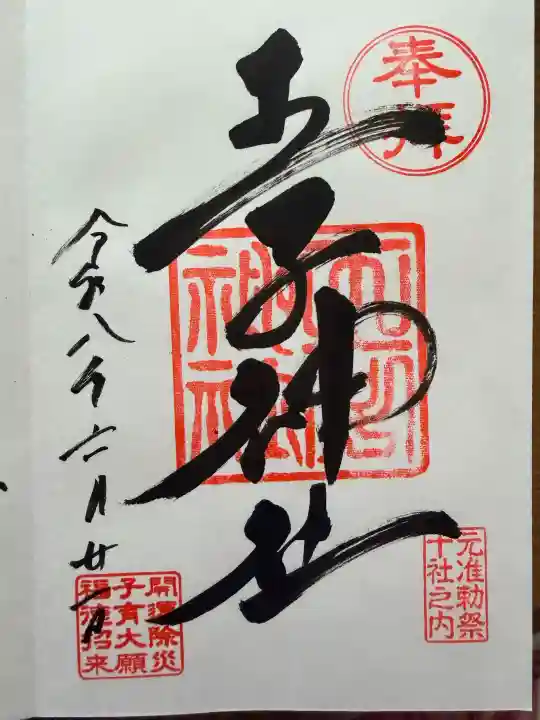 奉拝
王子神社
元准勅祭
十社之内
令和八年六月廿一日
開運除災
子育大願
福徳招来